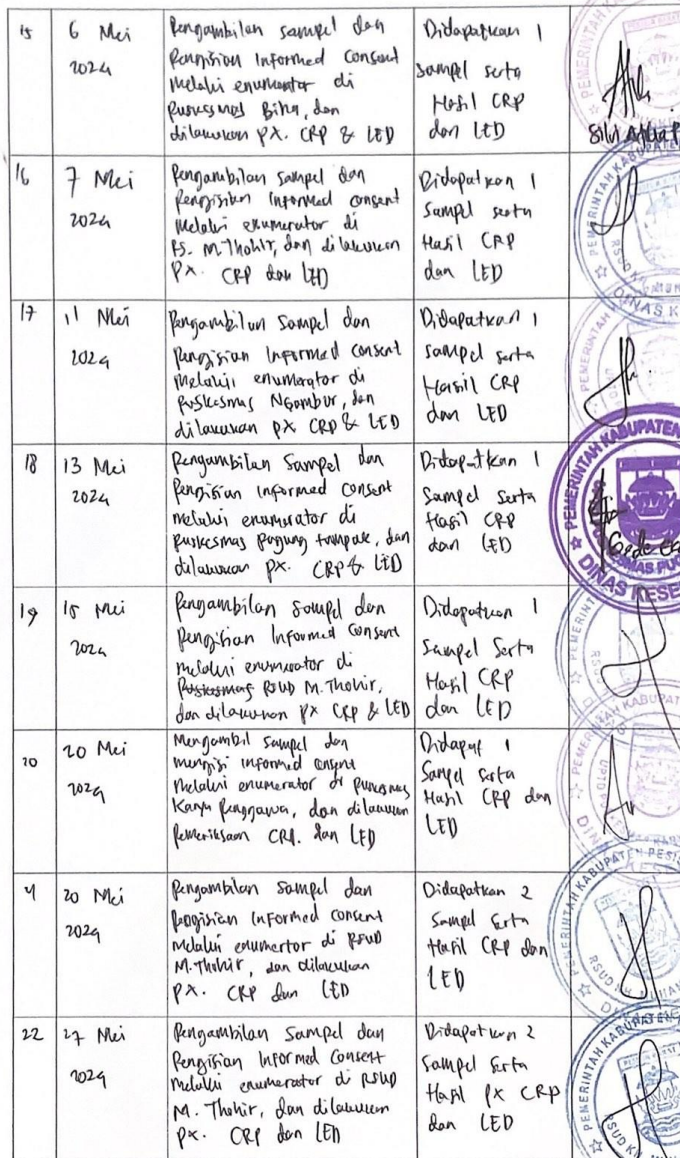 15
6 Mei
2024
Pengambilan sampel dan
Pengisian Informed Consent
melalui enumerator di
Puskesmas Biha, dan
dilakukan PX. CRP & LED
Didapatkan 1
Sampel serta
Hasil CRP
dan LED
16
7 Mei
2024
Pengambilan sampel dan
Pengisian Informed consent
melalui enumerator di
RS. M. Thohir, dan dilakukan
PX. CRP dan LED
Didapatkan 1
Sampel serta
Hasil CRP
dan LED
17
11 Mei
2024
Pengambilan Sampel dan
Pengisian Informed consent
melalui enumerator di
Puskesmas Ngambur, dan
dilakukan PX CRP & LED
Didapatkan 1
Sampel serta
Hasil CRP
dan LED
18
13 Mei
2024
Pengambilan Sampel dan
Pengisian Informed Consent
melalui enumerator di
Puskesmas Pugung tampak, dan
dilakukan PX. CRP & LED
Didapatkan 1
Sampel Serta
Hasil CRP
dan LED
PEMERINTAH KABUPATEN
DINAS KESE
19
15 Mei
2024
Pengambilan Sampel dan
Pengisian Informed Consent
melalui enumerator di
Puskesmas RSUD M. Thohir,
dan dilakukan PX CRP & LED
Didapatkan 1
Sampel Serta
Hasil CRP
dan LED
20
20 Mei
2024
Mengambil sampel dan
mengisi informed consent
melalui enumerator di Puskesmas
Karya Penggawa, dan dilakukan
Pemeriksaan CRP. dan LED
Didapat 1
Sampel Serta
Hasil CRP dan
LED
20 Mei
2024
Pengambilan Sampel dan
Pengisian Informed Consent
Melalui enumertor di RSUD
M. Thohir, dan dilakukan
PX. CRP dan LED
Didapatkan 2
Sampel Serta
Hasil CRP dan
LED
22
27 Mei
2024
Pengambilan Sampel dan
Pengisian Informed Consent
Melalui enumerator di RSUD
M. Thohir, dan dilakukan
PX. CRP dan LED
Didapatkan 2
Sampel Serta
Hasil PX CRP
dan LED